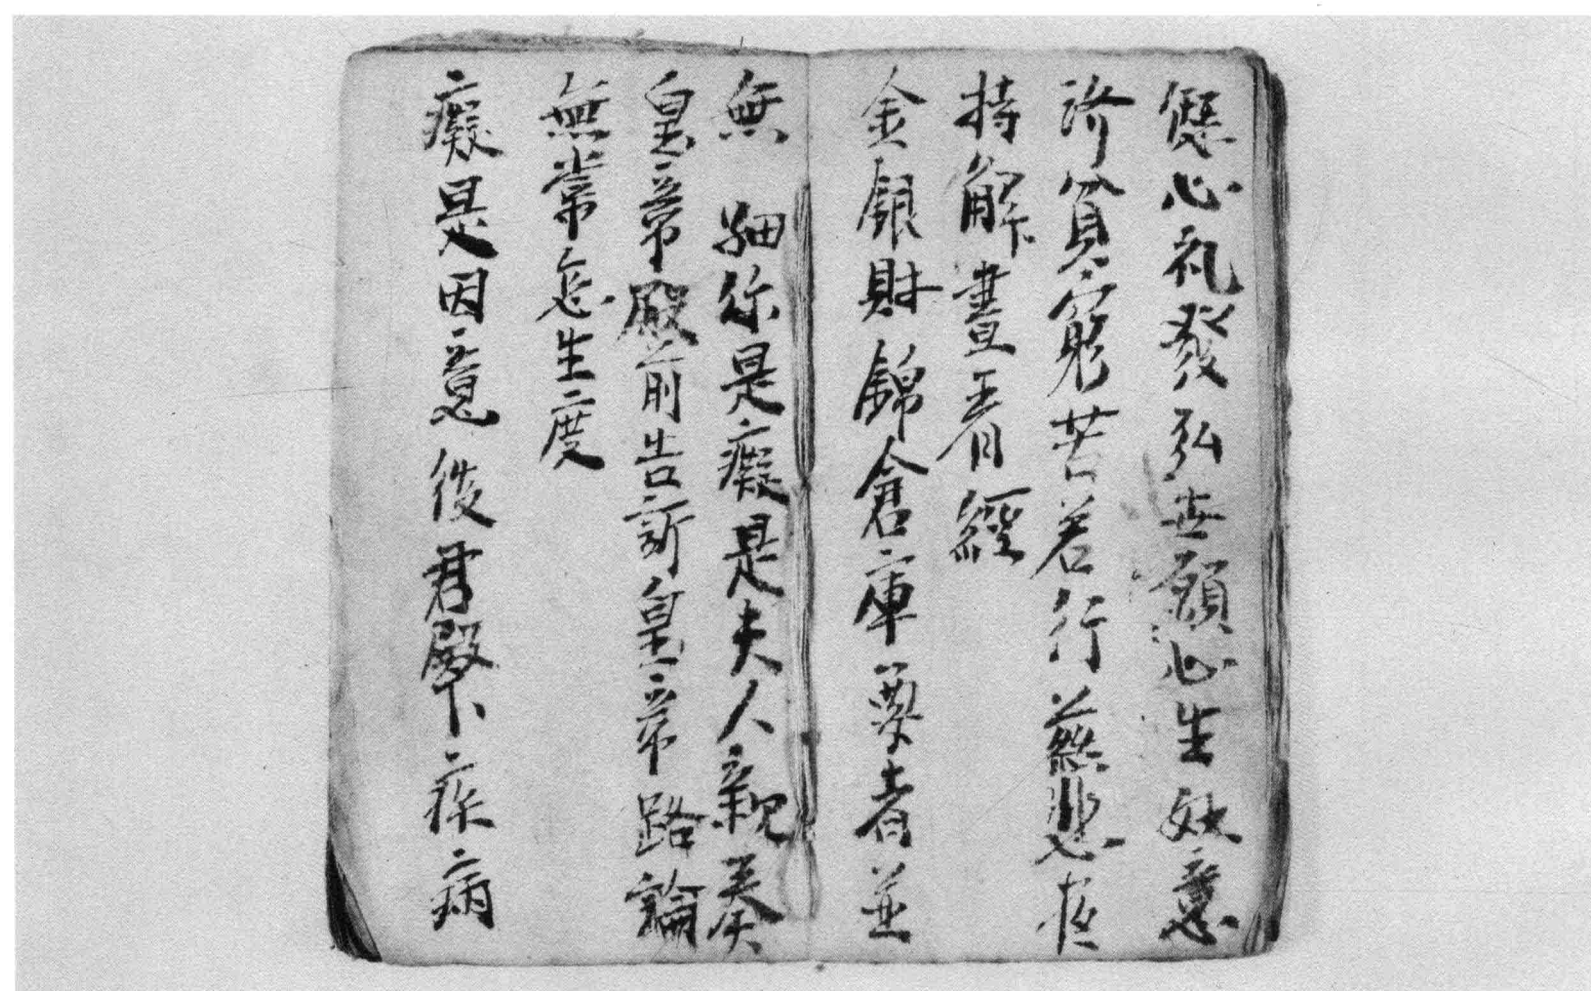 心礼發弘世願心生妙意
濟貧窮苦若行慈悲
持解晝看經
金銀財錦倉庫要者並
無 細你是癡是夫人親奏
皇帝殿前告訴皇帝路論
無常怎生度
癡是因意後君殿下疾病